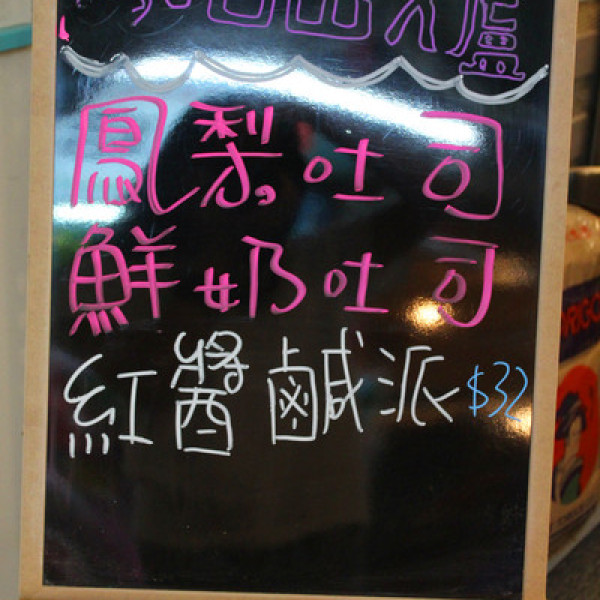 出爐
鳳梨吐司
鮮奶吐司
紅醬鹹派 $32